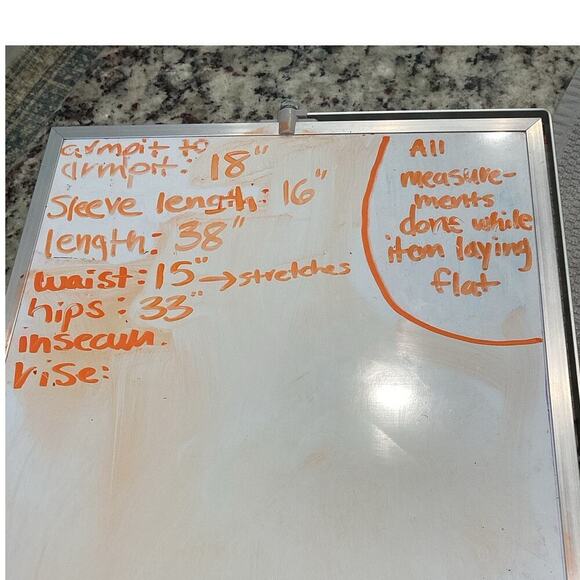 armpit to
armpit: 18"
Sleeve length: 16"
length: 38"
waist: 15" → stretches
hips: 33"
insecum.
rise:
All
measure-
ments
done while
item laying
flat